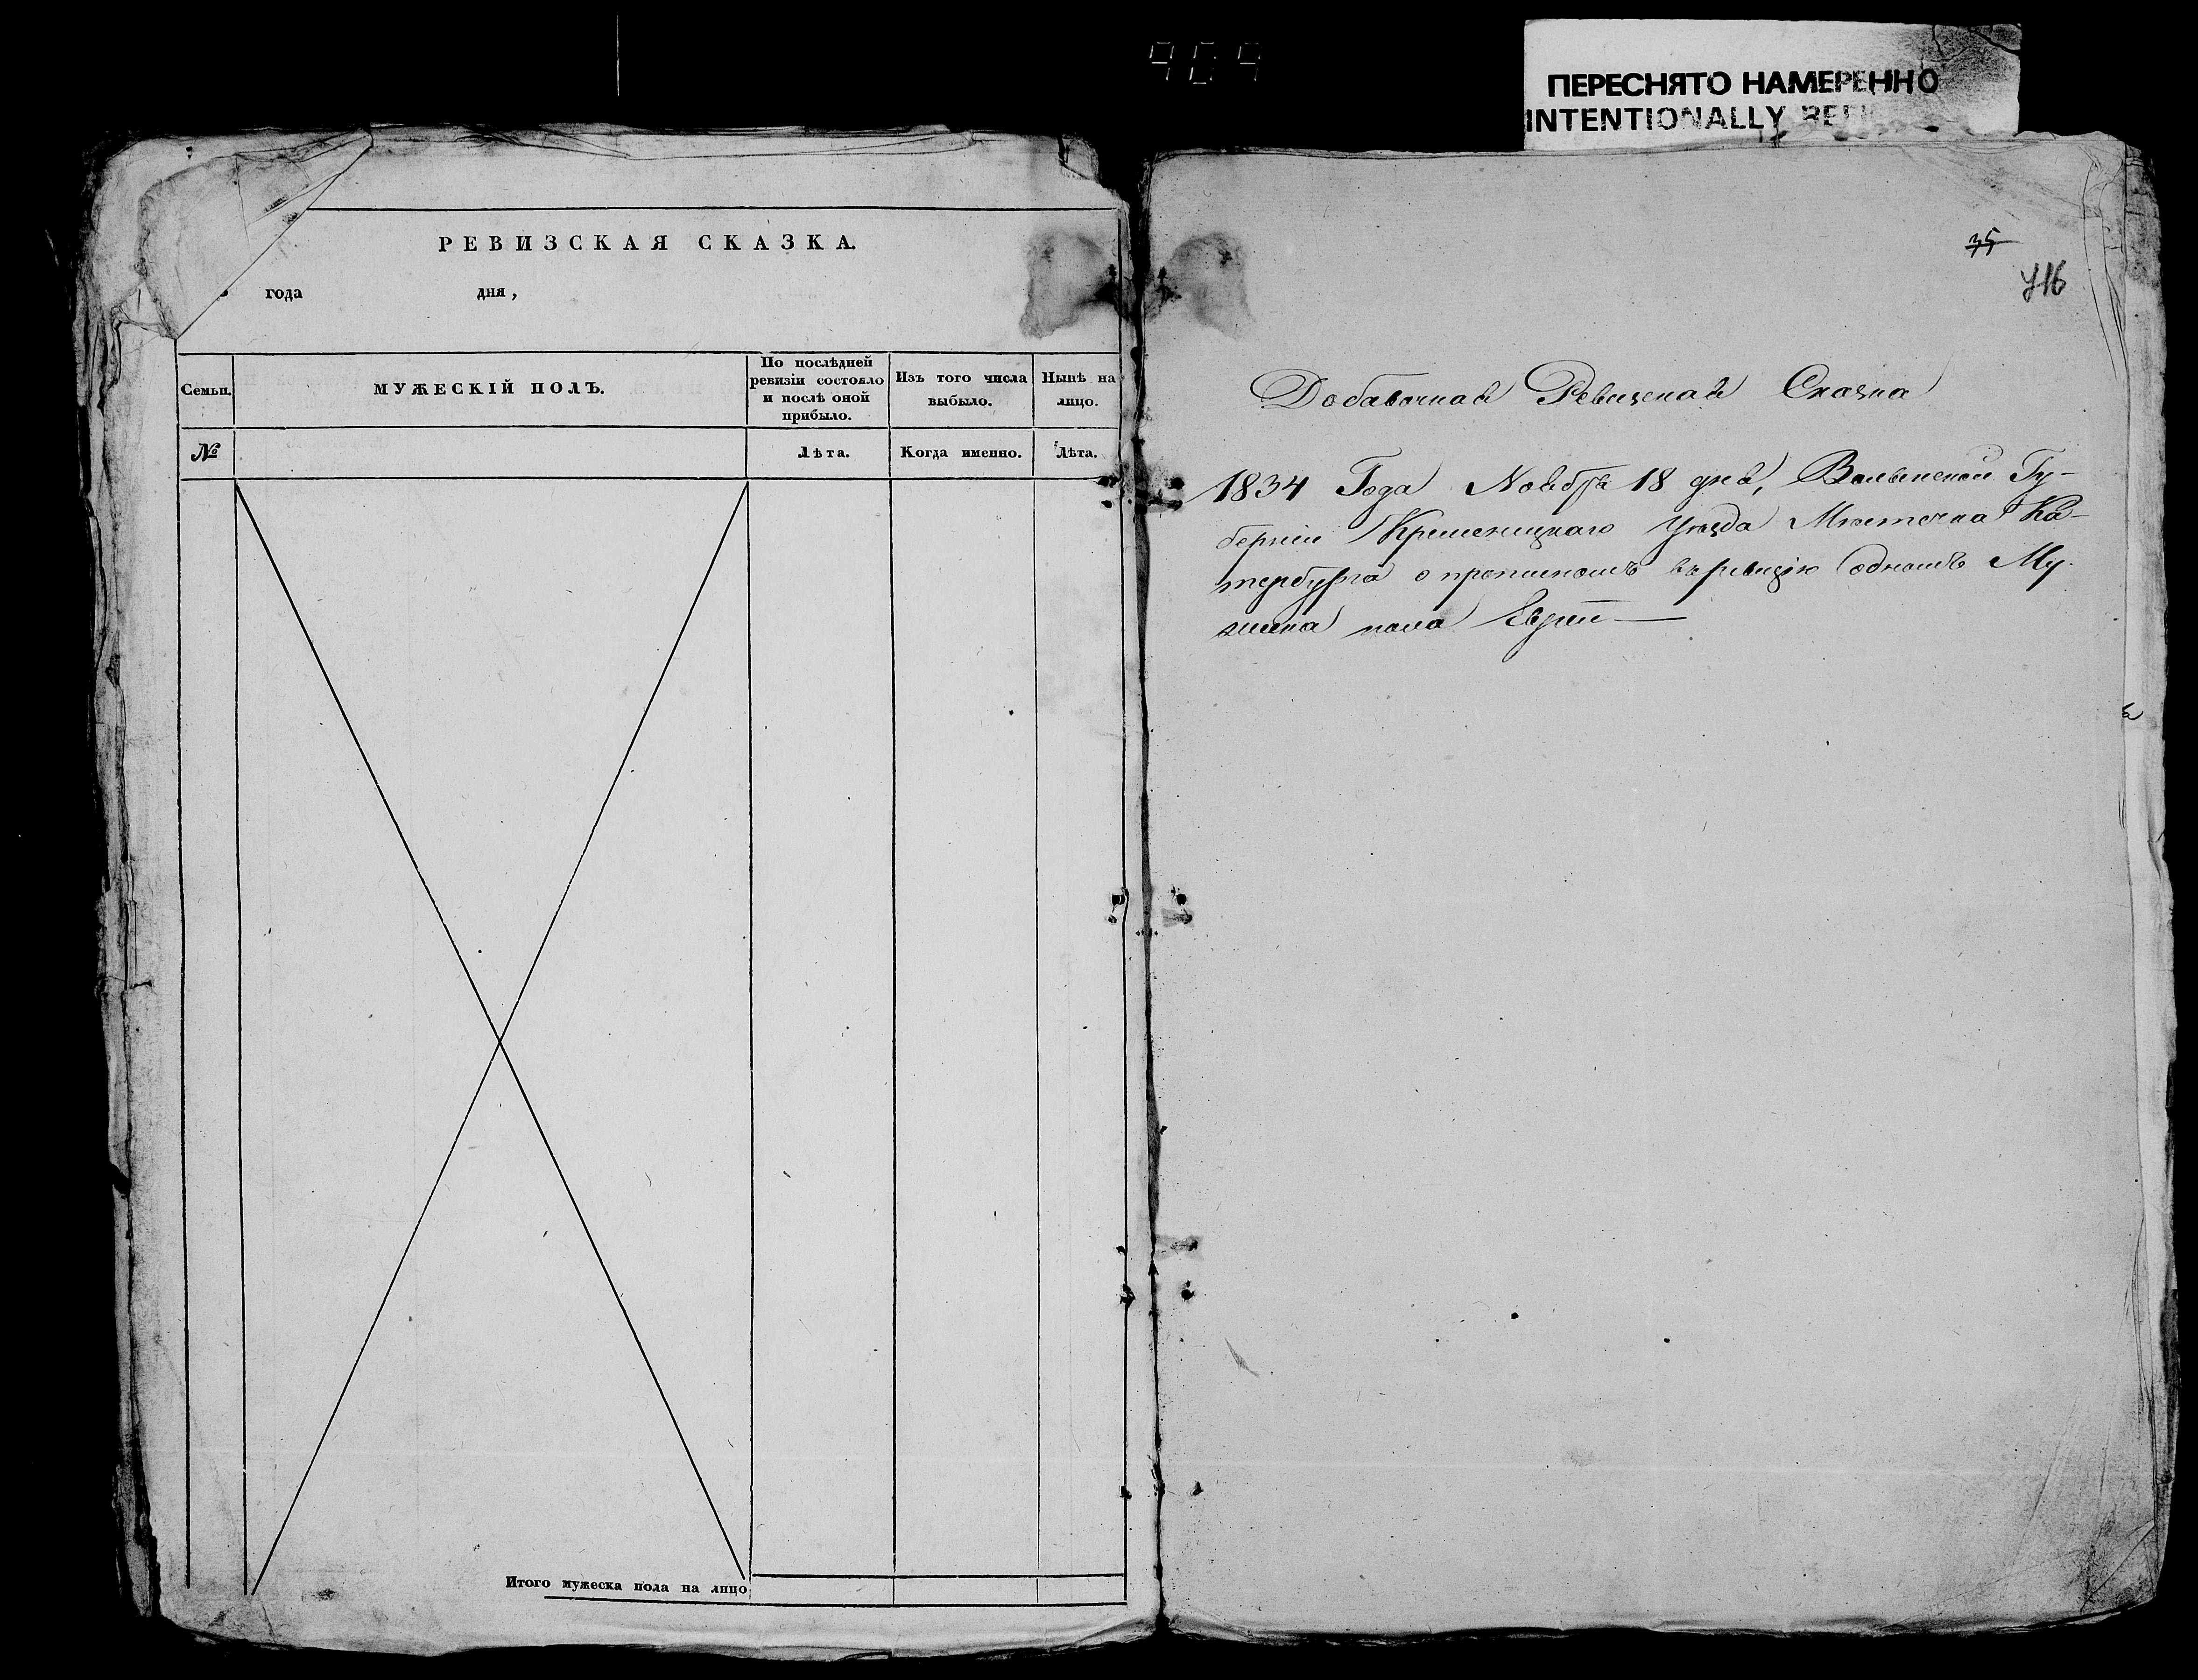 404
ПЕРЕСНЯТО НАМЕРЕННО
INTENTIONALLY
РЕВИЗСКАЯ СКАЗКА.
года дня,
Семьи.
МУЖЕСКІЙ ПОЛЪ.
По послѣдней
ревизіи состояло
и послѣ оной
прибыло.
Изъ того числа
выбыло.
Нынѣ на
лицо.
№
Лѣта.
Когда именно.
Лѣта.
Итого мужеска пола на лицо
35
416
Добавочная Ревизская Сказка
1834 Года Ноября 18 дня, Волынской Гу-
берніи Кременецкаго Уѣзда Мѣстечка Ка-
тербурга о прописномъ въ ревизію одномъ Му-
жеска пола